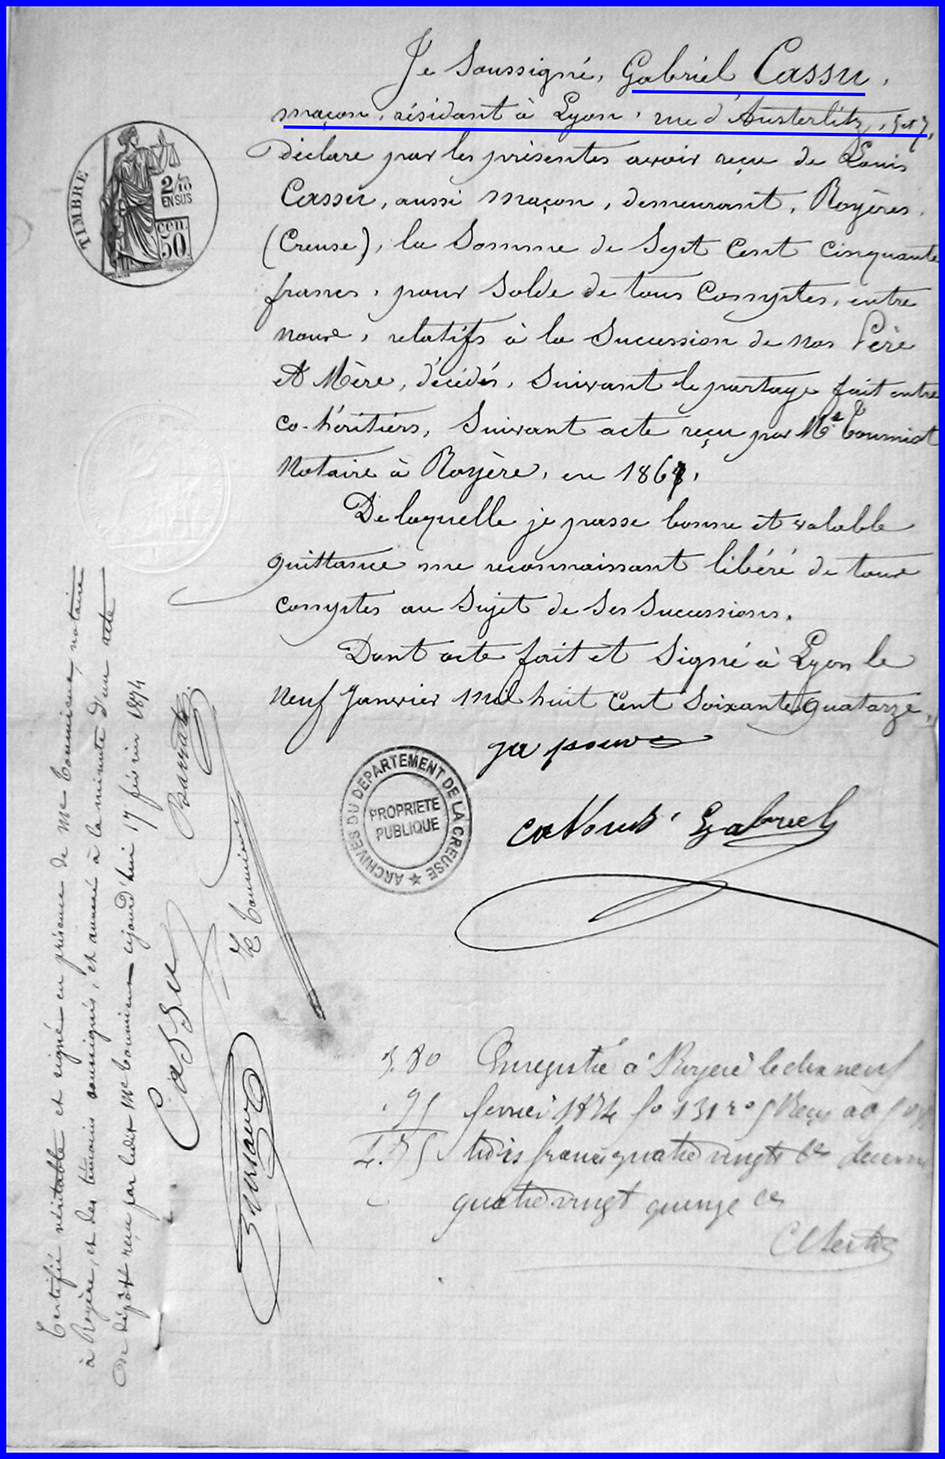 Je Soussigné, Gabriel Cassu,
maçon, résidant à Lyon, rue d'Austerlitz, 5 et 7,
déclare par les présentes avoir reçu de Louis
Cassu, aussi maçon, demeurant, Royères,
(Creuse), la Somme de Sept Cent Cinquante
francs, pour Solde de tous Comptes, entre
nous, relatifs à la Succession de nos Père
et Mère, décédés, Suivant le partage fait entre
co-héritiers, Suivant acte reçu par Me
Notaire à Royère, en 186
De laquelle je passe bonne et valable
quittance me reconnaissant libéré de tous
comptes au Sujet de Ses Successions.
Dont acte fait et Signé à Lyon le
Neuf Janvier Mil huit Cent Soixante quatorze,
Gabriel
TIMBRE
2/10
EN SUS
50
ARCHIVES DU DEPARTEMENT DE LA CREUSE
PROPRIETE
PUBLIQUE
Certifié véritable et signé en présence de Me notaire
à Royère, et des témoins soussignés, et annexé à la minute d'un acte
de dépôt reçu par ledit Me cejourd'hui 17 février 1874
Cassu
3.80 Enregistré à Royère le dix neuf
.95 février 1874 fo 131 ro Reçu
4.75 trois francs quatre vingts ces décimes
quatre vingt quinze ces